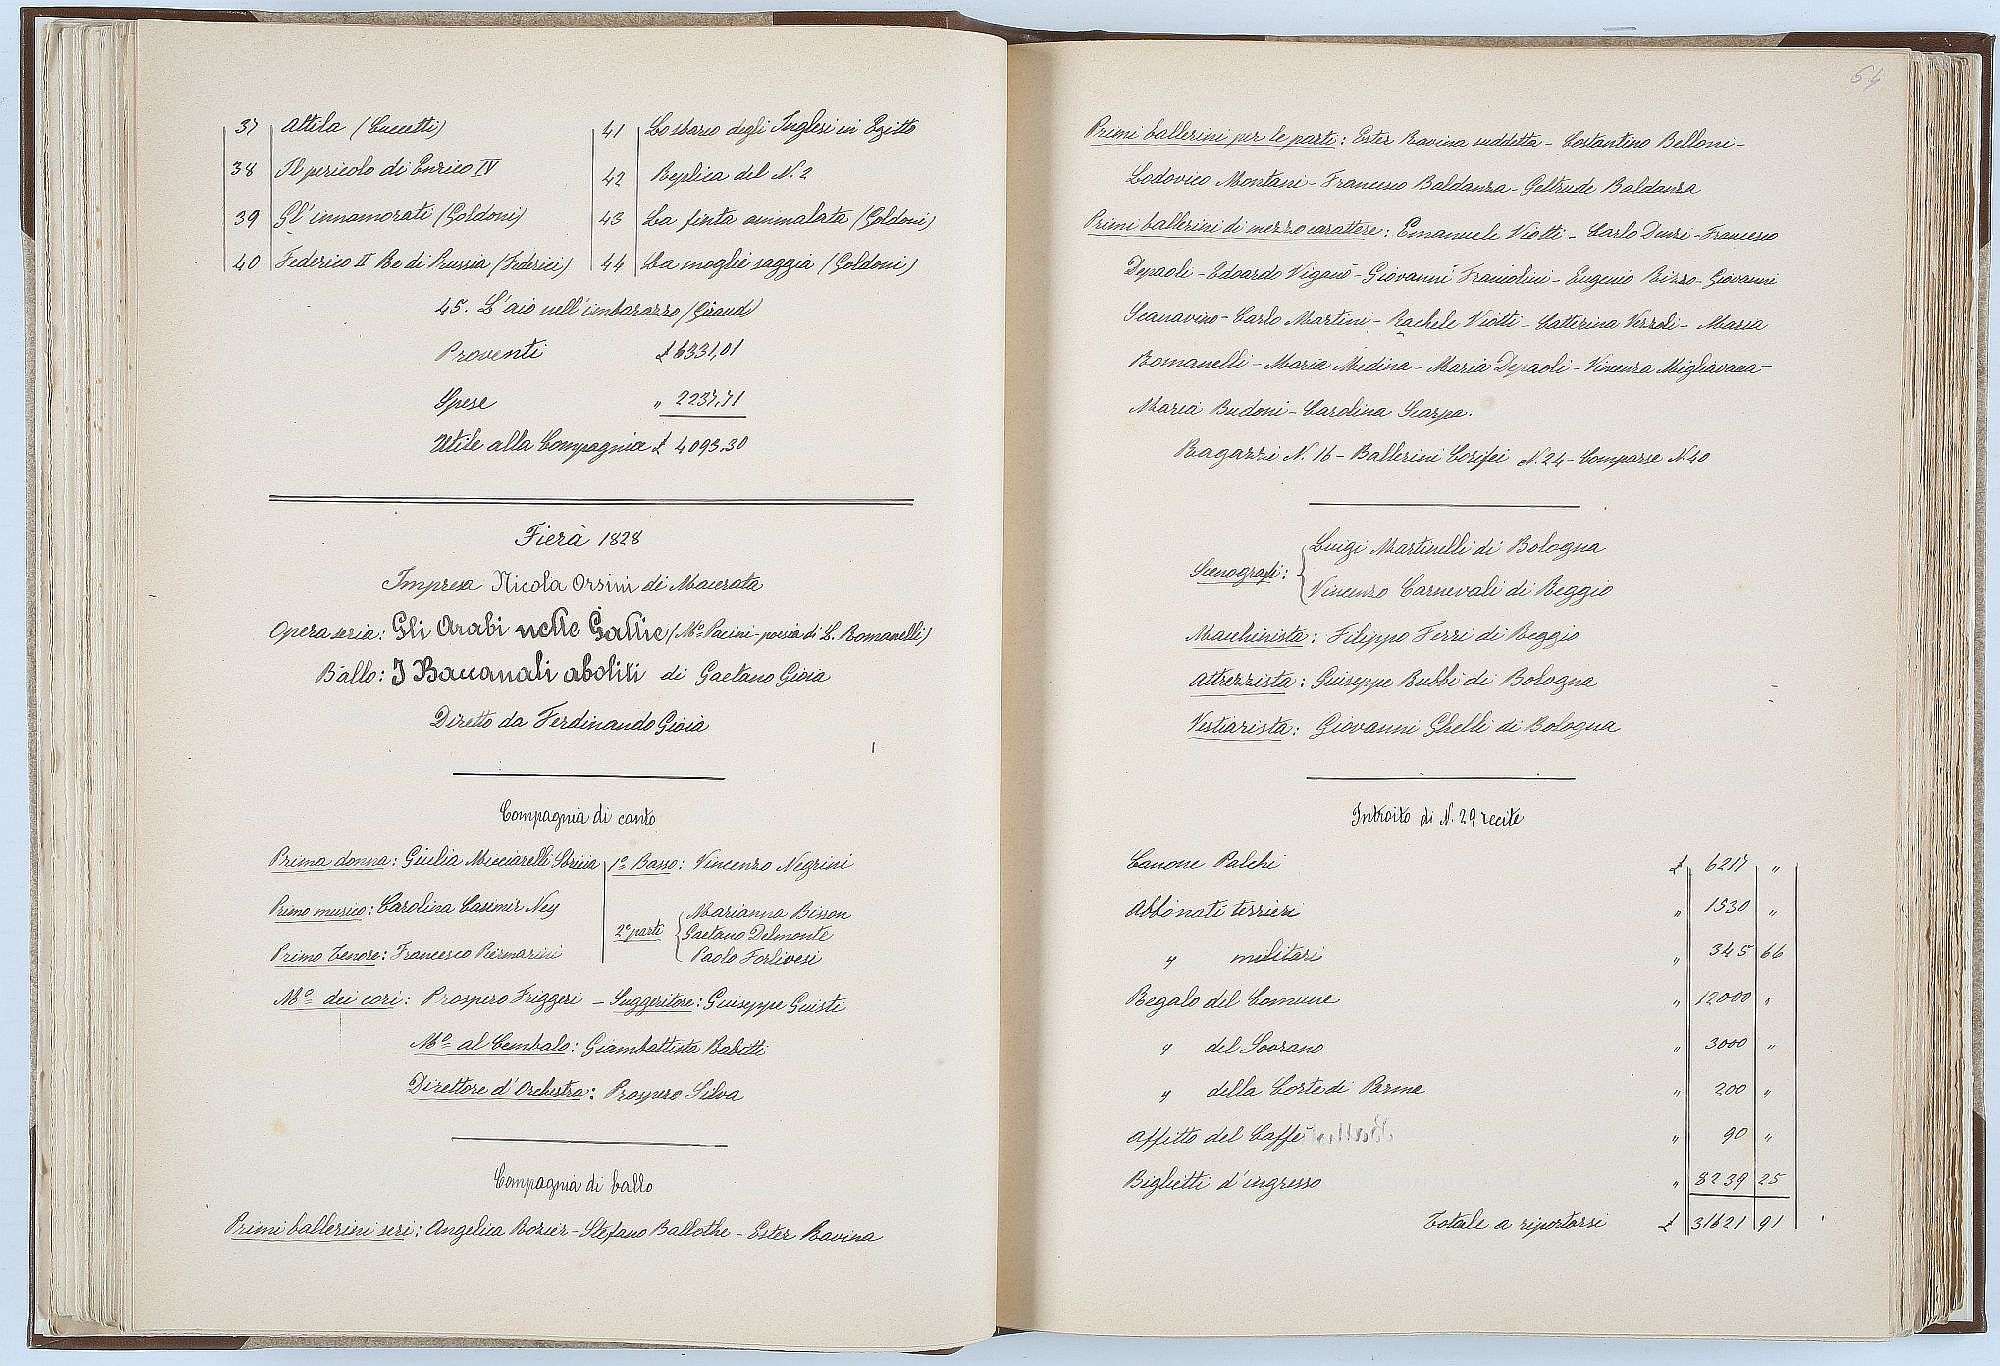 37 Attila (Cuccetti)
38 Il pericolo di Enrico IV
39 Gl'innamorati (Goldoni)
40 Federico II Re di Prussia (Federici)
41 Lo sbarco degli Inglesi in Egitto
42 Replica del N. 2
43 La finta ammalata (Goldoni)
44 La moglie saggia (Goldoni)
45. L'aio nell'imbarazzo (Giraud)
Proventi £ 6331,01
Spese " 2237,71
Utile alla Compagnia £ 4093.30
Fiera 1828
Impresa Nicola Orsini di Macerata
Opera seria: Gli Arabi nelle Gallie (Mo. Pacini - poesia di L. Romanelli)
Ballo: I Baccanali aboliti di Gaetano Gioia
Diretto da Ferdinando Gioia
Compagnia di canto
Prima donna: Giulia Micciarelli Sbriscia
Primo musico: Carolina Casimir Ney
Primo Tenore: Francesco Piermarini
1o Basso: Vincenzo Negrini
2e parti Marianna Bisson
Gaetano Delmonte
Paolo Forlivesi
Mo dei cori: Prospero Friggeri - Suggeritore: Giuseppe Giusti
Mo al Cembalo: Giambattista Rabitti
Direttore d'Orchestra: Prospero Silva
Compagnia di ballo
Primi ballerini seri: Angelica Rozier - Stefano Ballothe - Ester Ravina
64
Primi ballerini per le parti: Ester Ravina suddetta - Costantino Belloni -
Lodovico Montani - Francesco Baldanza - Geltrude Baldanza
Primi ballerini di mezzo carattere: Emanuele Viotti - Carlo Dinzi - Francesco
Depaoli - Edoardo Viganò - Giovanni Franiolini - Eugenio Rizzo - Giovanni
Scanavino - Carlo Martini - Rachele Viotti - Catterina Vezzoli - Maria
Romanelli - Maria Medina - Maria Depaoli - Vincenza Migliavacca -
Maria Budoni - Carolina Scarpa.
Ragazzi N. 16 - Ballerini Corifei N. 24 - Comparse N. 40
Scenografi: Luigi Martinelli di Bologna
Vincenzo Carnevali di Reggio
Macchinista: Filippo Ferri di Reggio
Attrezzista: Giuseppe Rubbi di Bologna
Vestiarista: Giovanni Ghelli di Bologna
Introito di N. 29 recite
Canone Palchi £ 6217 "
Abbonati terrieri " 1530 "
" militari " 345 66
Regalo del Comune " 12000 "
" del Sovrano " 3000 "
" della Corte di Parma " 200 "
Affitto del Caffè " 90 "
Biglietti d'ingresso " 8239 25
Totale a riportarsi £ 31621 91